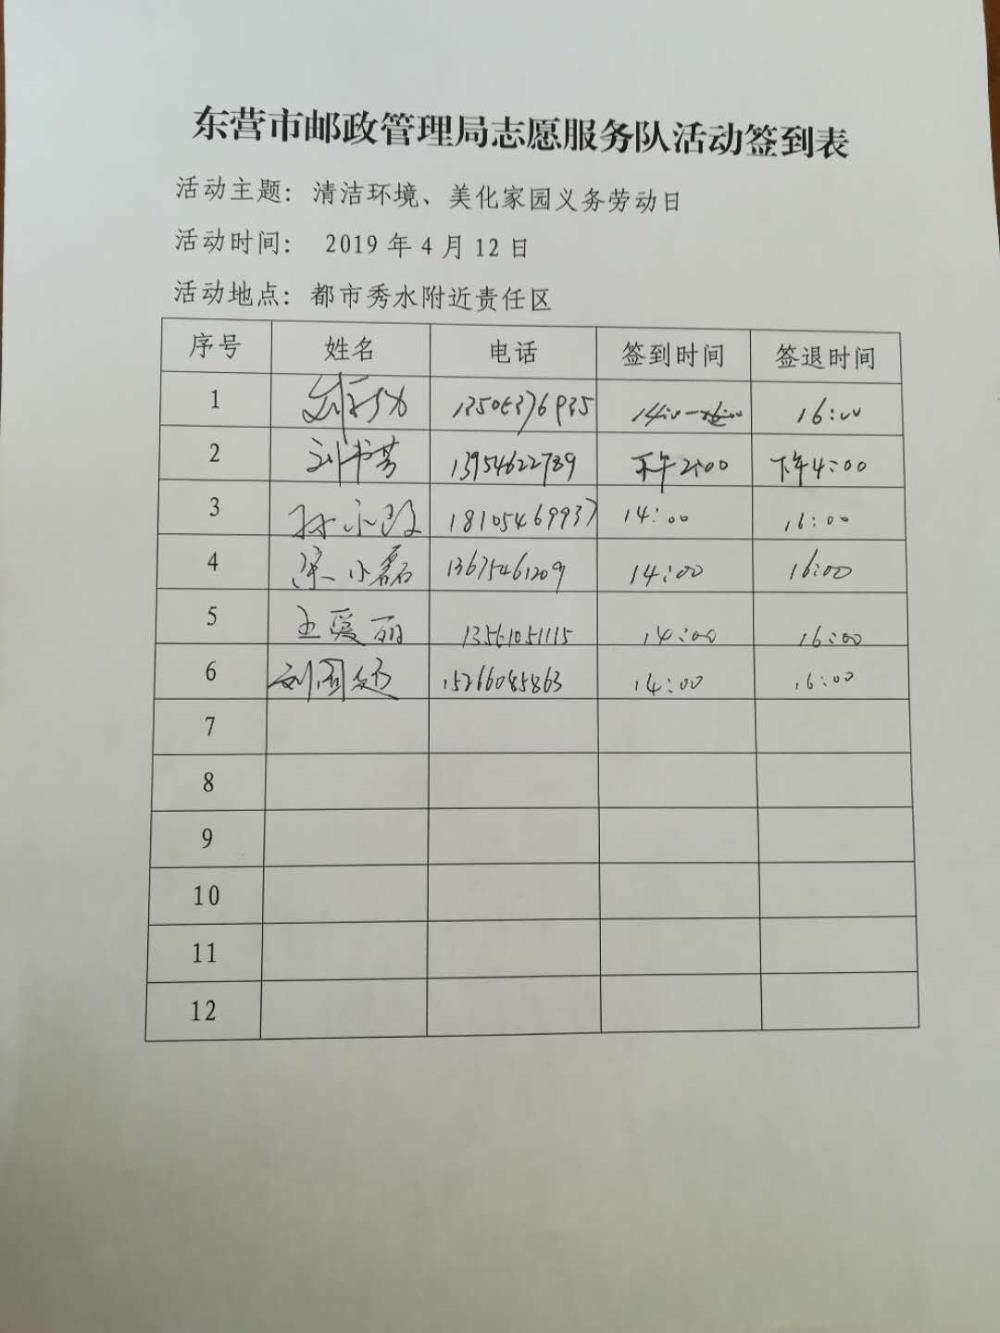 东营市邮政管理局志愿服务队活动签到表
活动主题：清洁环境、美化家园义务劳动日
活动时间： 2019 年 4 月 12 日
活动地点：都市秀水附近责任区
序号 姓名 电话 签到时间 签退时间
1 14:00 16:00
2 刘书芳 13954622789 下午2:00 下午4:00
3 孙小 18105469937 14:00 16:00
4 小磊 13675461209 14:00 16:00
5 王爱丽 13561051115 14:00 16:00
6 刘 15266085863 14:00 16:00
7
8
9
10
11
12